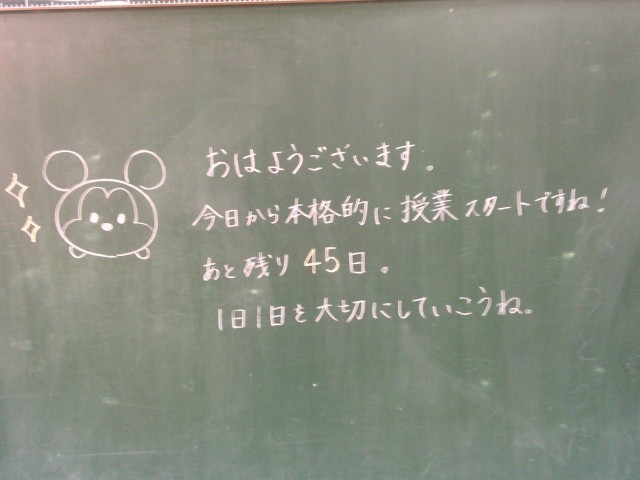 おはようございます。
今日から本格的に授業スタートですね!
あと残り45日。
1日1日を大切にしていこうね。